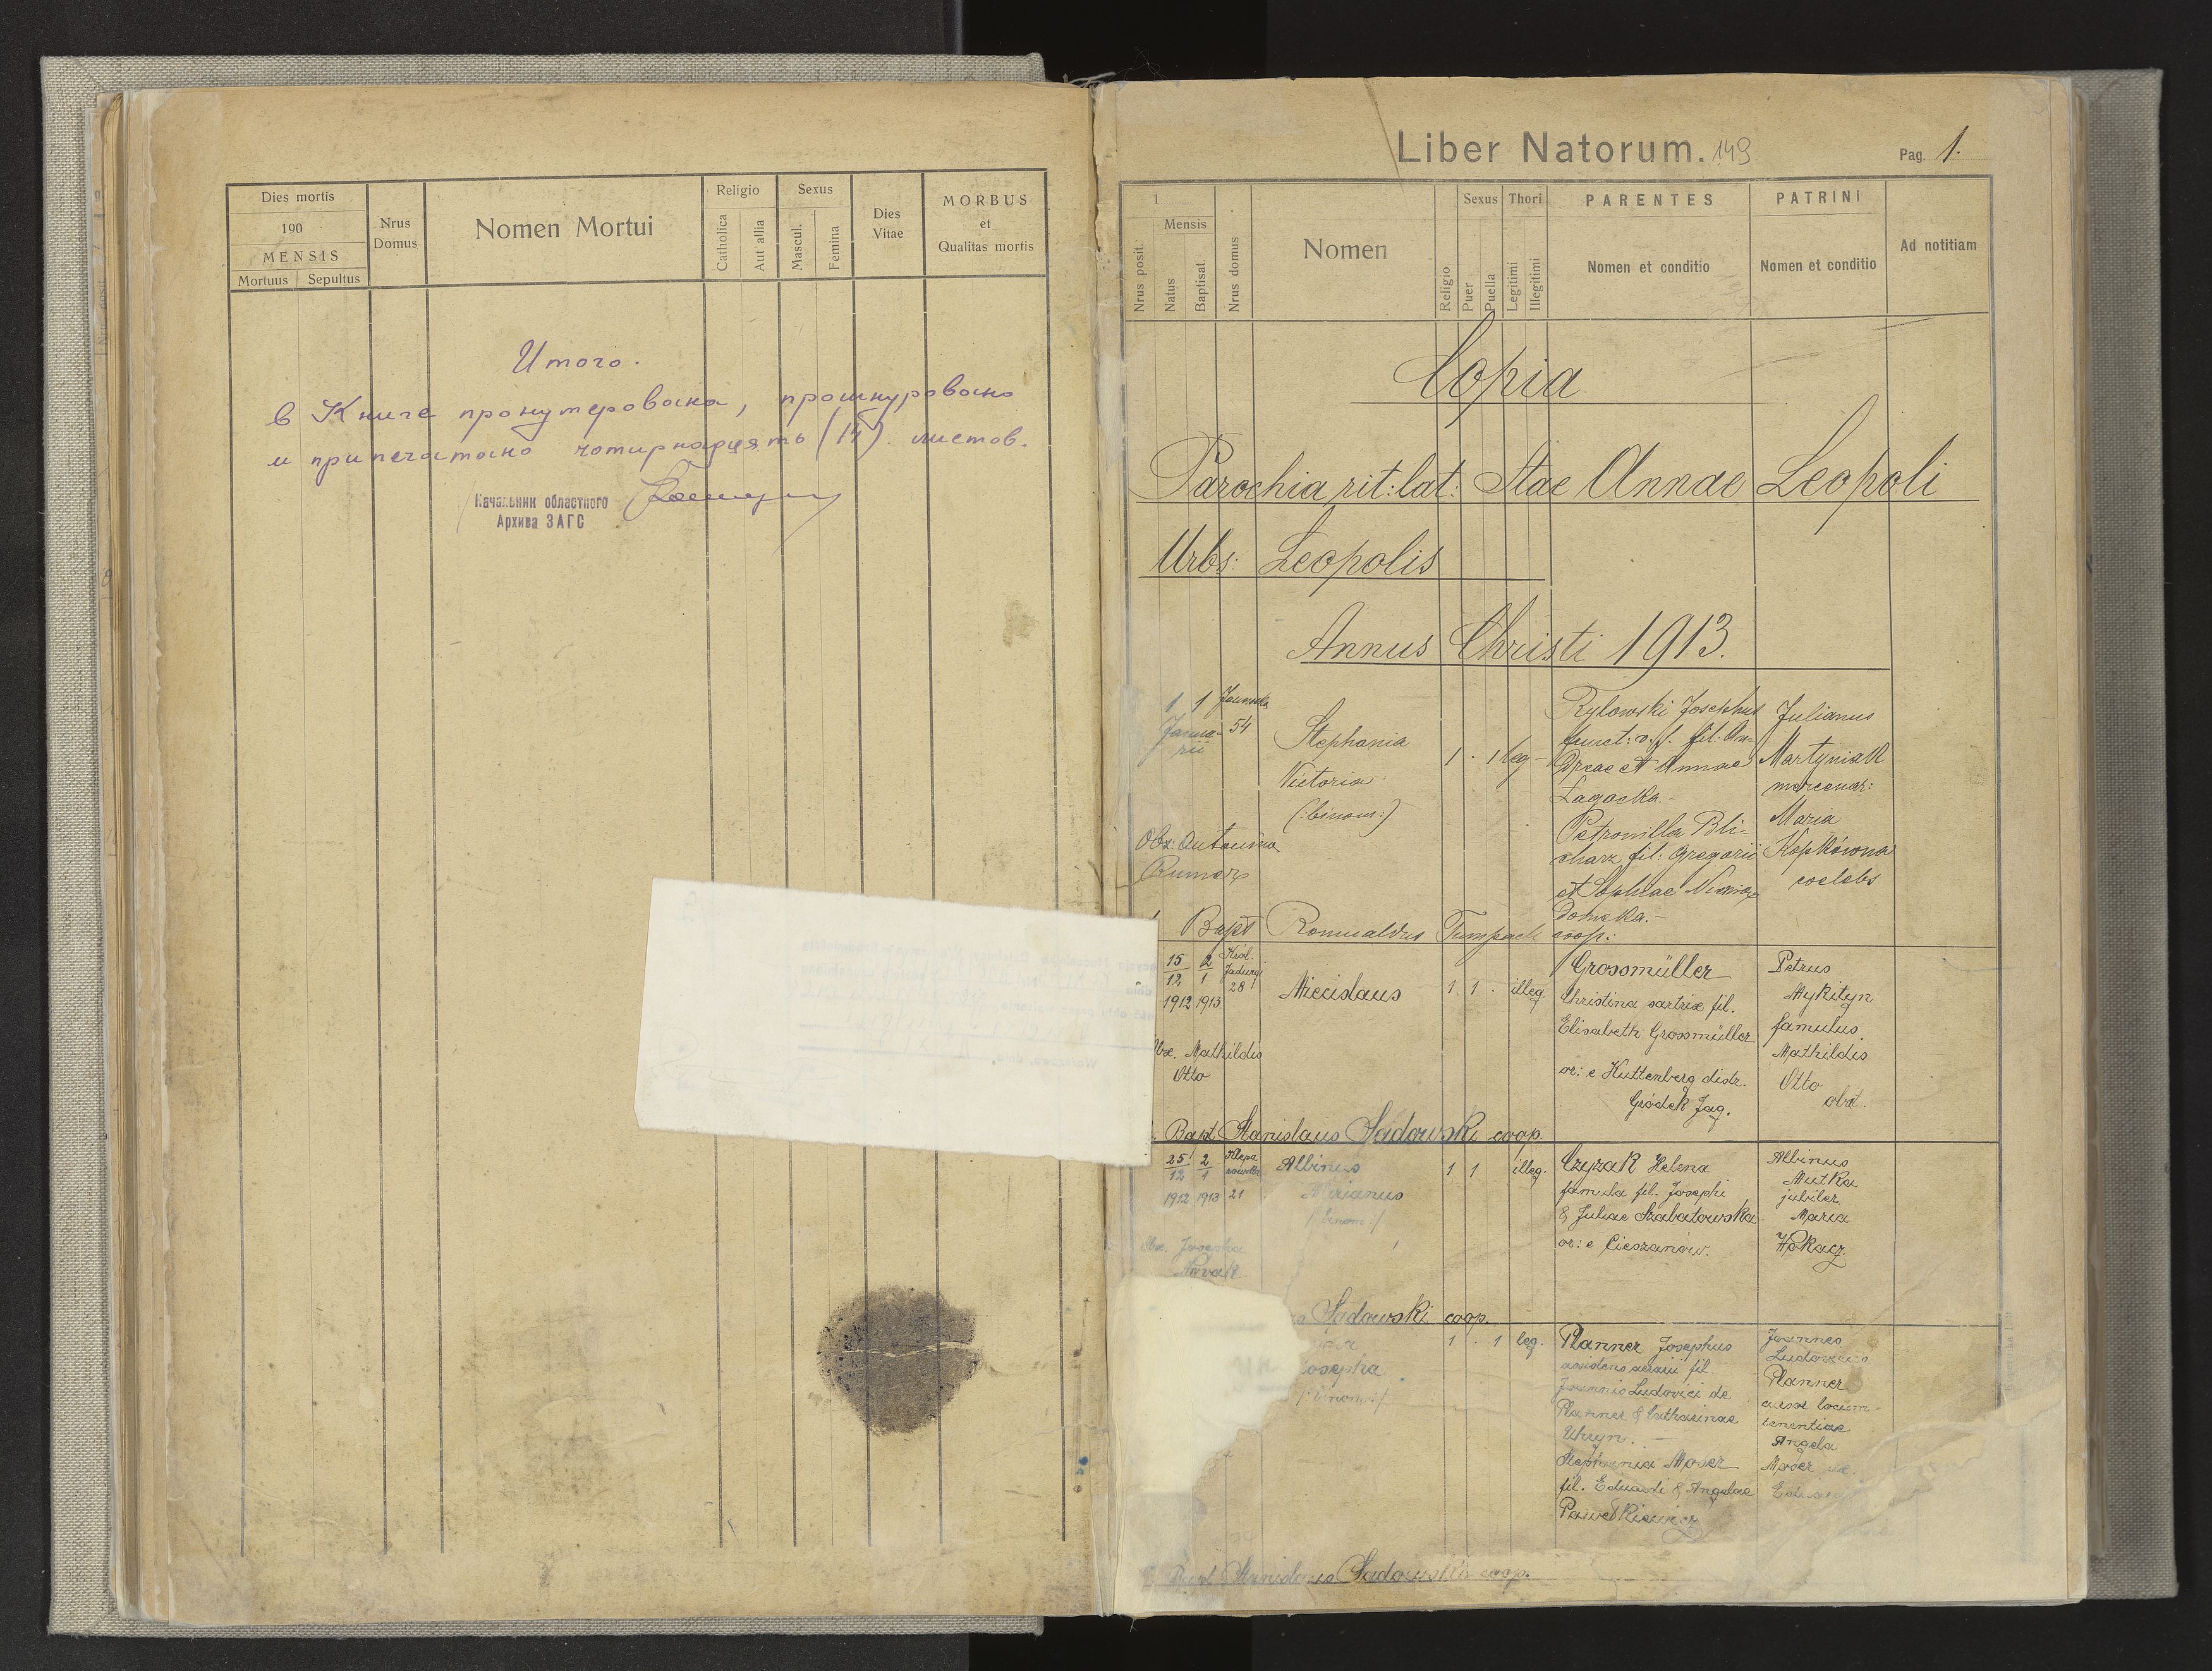 Dies mortis
190
MENSIS
Mortuus
Sepultus
Nrus
Domus
Nomen Mortui
Religio
Catholica
Aut allia
Sexus
Mascul.
Femina
Dies
Vitae
MORBUS
et
Qualitas mortis
Итого.
в Книге пронумеровано, прошнуровано
и припечатано чотирнадцять (14) листов.
Начальник областного
Архива ЗАГС
Liber Natorum. 149
Pag. 1.
1
Mensis
Nrus posit.
Natus
Baptisat.
Nrus domus
Nomen
Religio
Sexus
Puer
Puella
Thori
Legitimi
Illegitimi
PARENTES
Nomen et conditio
PATRINI
Nomen et conditio
Ad notitiam
Copia
Parochia rit: lat: Stae Annae Leopoli
Urbs: Leopolis
Annus Christi 1913.
1 1
Janua-
rii
54
Stephania
Victoria
(:binom:)
1 . 1 leg -
Rylowski Josephus
funct: v. f. fil: An-
dreae et Annae
Zagacka -
Petronilla Bli-
charz fil: Gregorii
et Sophiae
Julianus
Martyniak
mercenar:
Maria
Kopkówna
coelebs
Obs: Antonina
Bapt Romualdus coop:
15 2
12 1
1912 1913
28
Miecislaus
1. 1 . illeg.
Grossmüller
Christina sartrix fil.
Elisabeth Grossmüller
or: e Kuttenberg distr.
Gródek Jag.
Petrus
Mykityn
famulus
Mathildis
Otto
obst.
Obs. Mathildis
Otto
Bapt Stanislaus Sadowski coop.
25 2
12 1
1912 1913 21
Albinus
Marianus
/:binom:/
1 1 illeg.
Czyzak Helena
famula fil. Josephi
& Juliae Szabatowska
or: e Cieszanów.
Albinus
Mutka
jubiler
Maria
Obs. Josepha
Sadowski coop.
Josepha
/:binom:/
1 . 1 leg.
Planner Josephus
assidens aerarii fil.
Joannis Ludovici de
Planner & Catharinae
Uhryn. -
Stephania Moser
fil. Eduardi & Angelae
Pawełkiewicz
Joannes
Ludovicus
Planner
Angela
Moser
Bapt Stanislaus Sadowski coop.